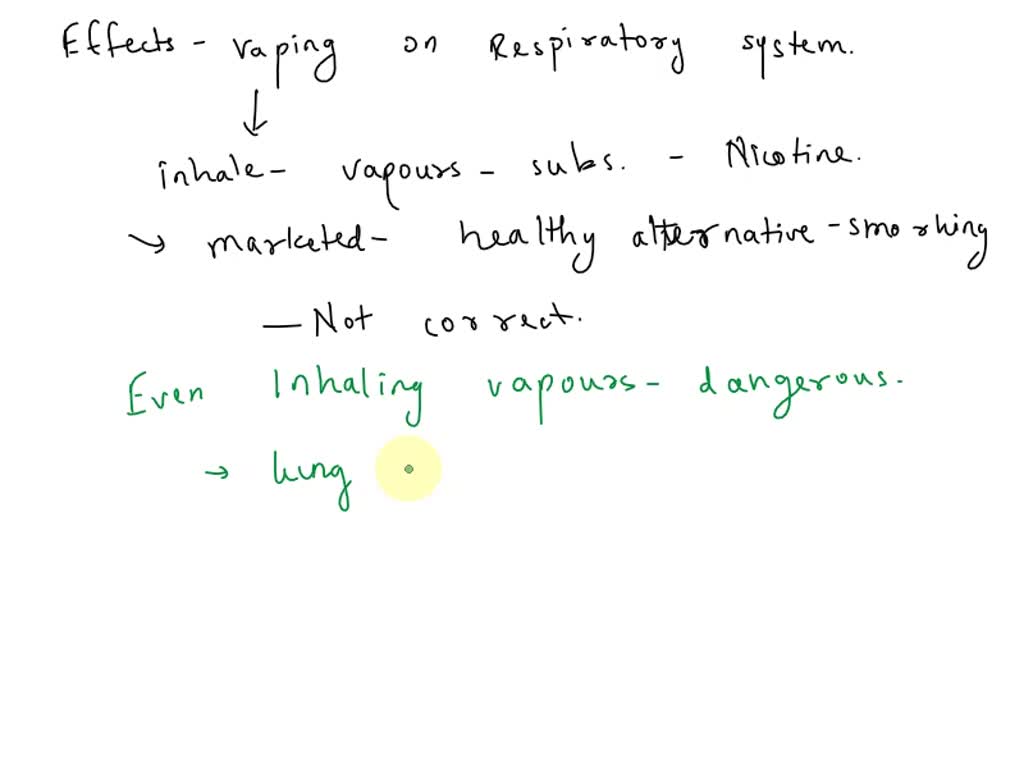 Effects - vaping on Respiratory system.
↓
inhale - vapours - subs. - Nicotine.
→ marketed - healthy alternative - smorking
— Not correct.
Even Inhaling vapours - dangerous.
→ lung